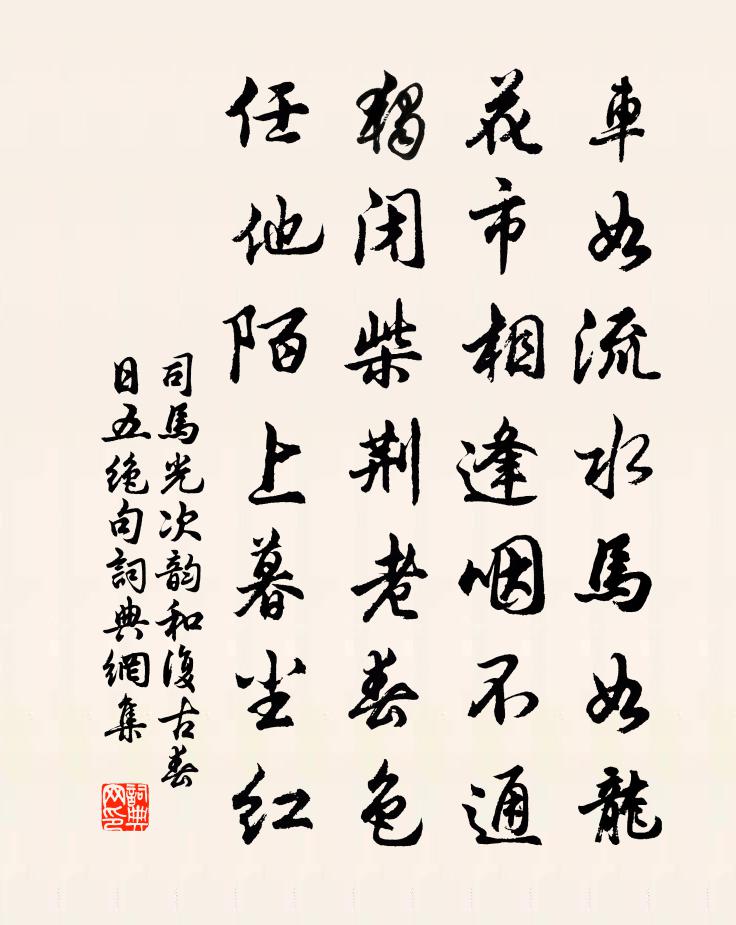 車如流水馬如龍
花市相逢咽不通
獨閉柴荆老春色
任他陌上暮尘紅
司馬光次韵和復古春
日五絶句詞典網集
詞典
网印